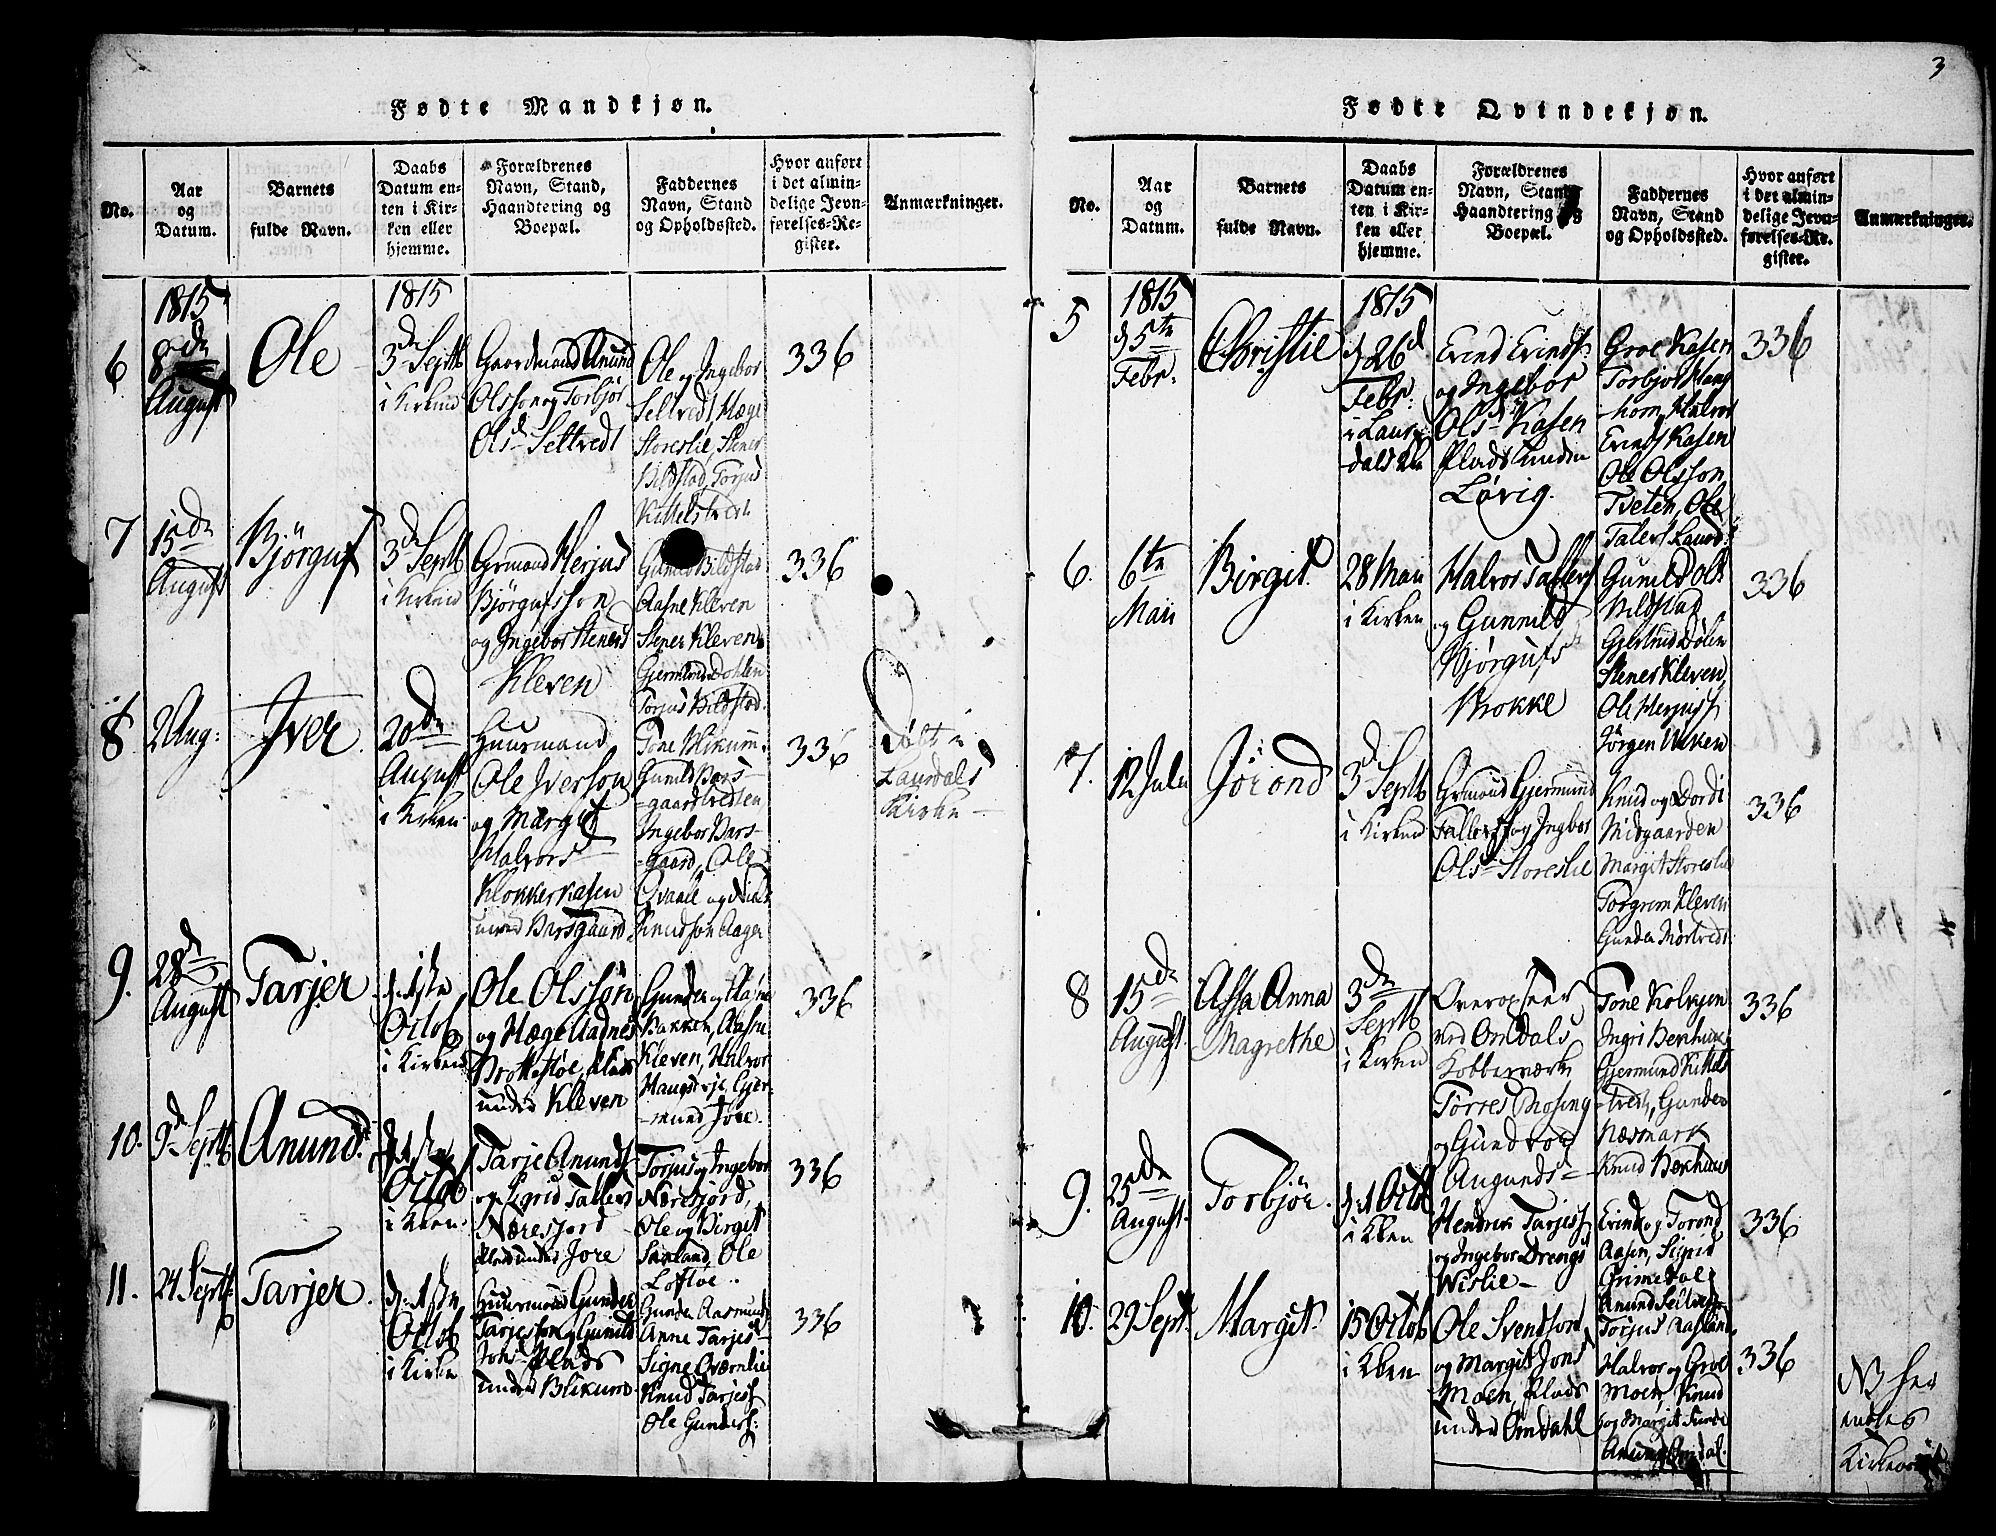 3
Fødte Mandkjøn.
No.
Aar
og
Datum.
Barnets
fulde Navn.
Daabs
Datum en-
ten i Kir-
ken eller
hjemme.
Forældrenes
Navn, Stand,
Haandtering og
Boepæl.
Faddernes
Navn, Stand
og Opholdssted.
Hvor anført
i det almin-
delige Jevn-
førelses-Re-
gister.
Anmærkninger.
6
1815
8de
August
Ole
1815
3d Septb
i Kirken
Gaardmand Anund
Olsson og Torbjør
Olsd Seltvedt
Ole og Ingebor
Seltvedt, Hæge
Storeslie, Stener
Bildstad, Torjus
Kittelstvedt
336
7
15de
August
Bjørguf
3d Septb
i Kirken
Grmand Herjus
Bjørgufsson
og Ingebor Steners
Kleven
Gunild Bildstad
Aasne Kleven
Stener Kleven
Gjermund Dohlen
Torjus Bildstad
336
8
2 Aug:
Iver
20de
August
i Kirken
Huusmand
Ole Iverson
og Margit
Halvors
Klokkerkasen
under Barsgaard
Tone Blikum
Gunild Bars-
gaardtvedten
Ingebor Bars-
gaard, Ole
Qvaale og
Knudson Aager
336
Døbt i
Laurdals
Kirke
9.
28de
August
Tarjer
d. 1ste
Octob
i Kirken
Ole Olsson
og Hæge Aadnes
Brokkestøe, Plads
under Kleven
Gunder og Aasne
Bakken, Aasne
Kleven, Halvor
Haugetvje, Gjer-
mund Jore.
336
10.
9d Septb
Anund
d. 1ste
Octob
i Kken
Tarje Anunds
og Sigrid Tallevs
Næresjord
Plads under Jore
Torjus og Ingebor
Næresjord,
Ole og Birgit
Saxland, Ole
Loftloe..
336
11.
24 Septb
Tarjer
d. 1ste
Octob
i Kirken
Huusmand Gunder
Tarjesson og Gunild
Johsd Plads
under Blikum
Gunder Aasmunds
Anne Tarjesd
Signe Qværnlie
Knud Tarjess
Ole Gunders:
336
Fødte Qvindekjøn.
No.
Aar
og
Datum.
Barnets
fulde Navn.
Daabs
Datum en-
ten i Kir-
ken eller
hjemme.
Forældrenes
Navn, Stand
Haandtering og
Boepæl.
Faddernes
Navn, Stand
og Opholdssted.
Hvor anført
i det almin-
delige Jevn-
førelses-Re-
gister.
Anmærkninger.
5
1815
d 5te
Febr:
Christie
1815
d 26d
Febr:
i Laur-
dals Kke
Evind Evinds
og Ingebor
Olsd Kasen
Plads under
Løvig.
Groe Kasen
Torbjør Haug-
hom, Halvor
Evinds Kasen
Ole Olsson
Tveten, Ole
Talefs Laurd:
336
6.
6te
Maii
Birgit.
28 Maii
i Kirken
Halvor Tallefs
og Gunnild
Bjørgufsd
Brokke
Gunild Ols
Bildstad
Gjertrud Dølen
Stener Kleven,
Ole Herjuss
Jørgen Viken
336
7.
12 Julii
Jorond
3d Septb
i Kirken
Grmand Gjermund
Tallefs og Ingbor
Olsd Storeslie
Knud og Dordi
Midgaarden
Margit Storeslie
Torgrem Kleven
Gunder Mørtvedt
336
8
15de
August
Assa Anna
Magrethe
3de
Septb
i Kirken
Overopseer
ved Omdals
Kobberværk
Torres Mosing
og Gundvor
Aagunds-
Tone Kolvjen
Ingri Berhuus
Gjermund Kittels-
tvedt, Gunder
Næsmark
Knud Berhuus
336
9.
25de
August
Torbjør.
d. 1 Octob
i Kken
Hendrik Tarjess
og Ingebor Drengs
Wislie-
Evind og Torond
Aasen, Sigrid
Grimedal
Anund Seltvedt
Torjus Aasland
336
10.
29 Sept.
Margit.
15 Octob
i Kken
Ole Svendson
og Margit Jons
Moen, Plads
under Omdahl
Halvor og Groe
Moen, Knud
og Margit Sunde
Anund Omdal.
336
NB her
endes
Kirkeaaret